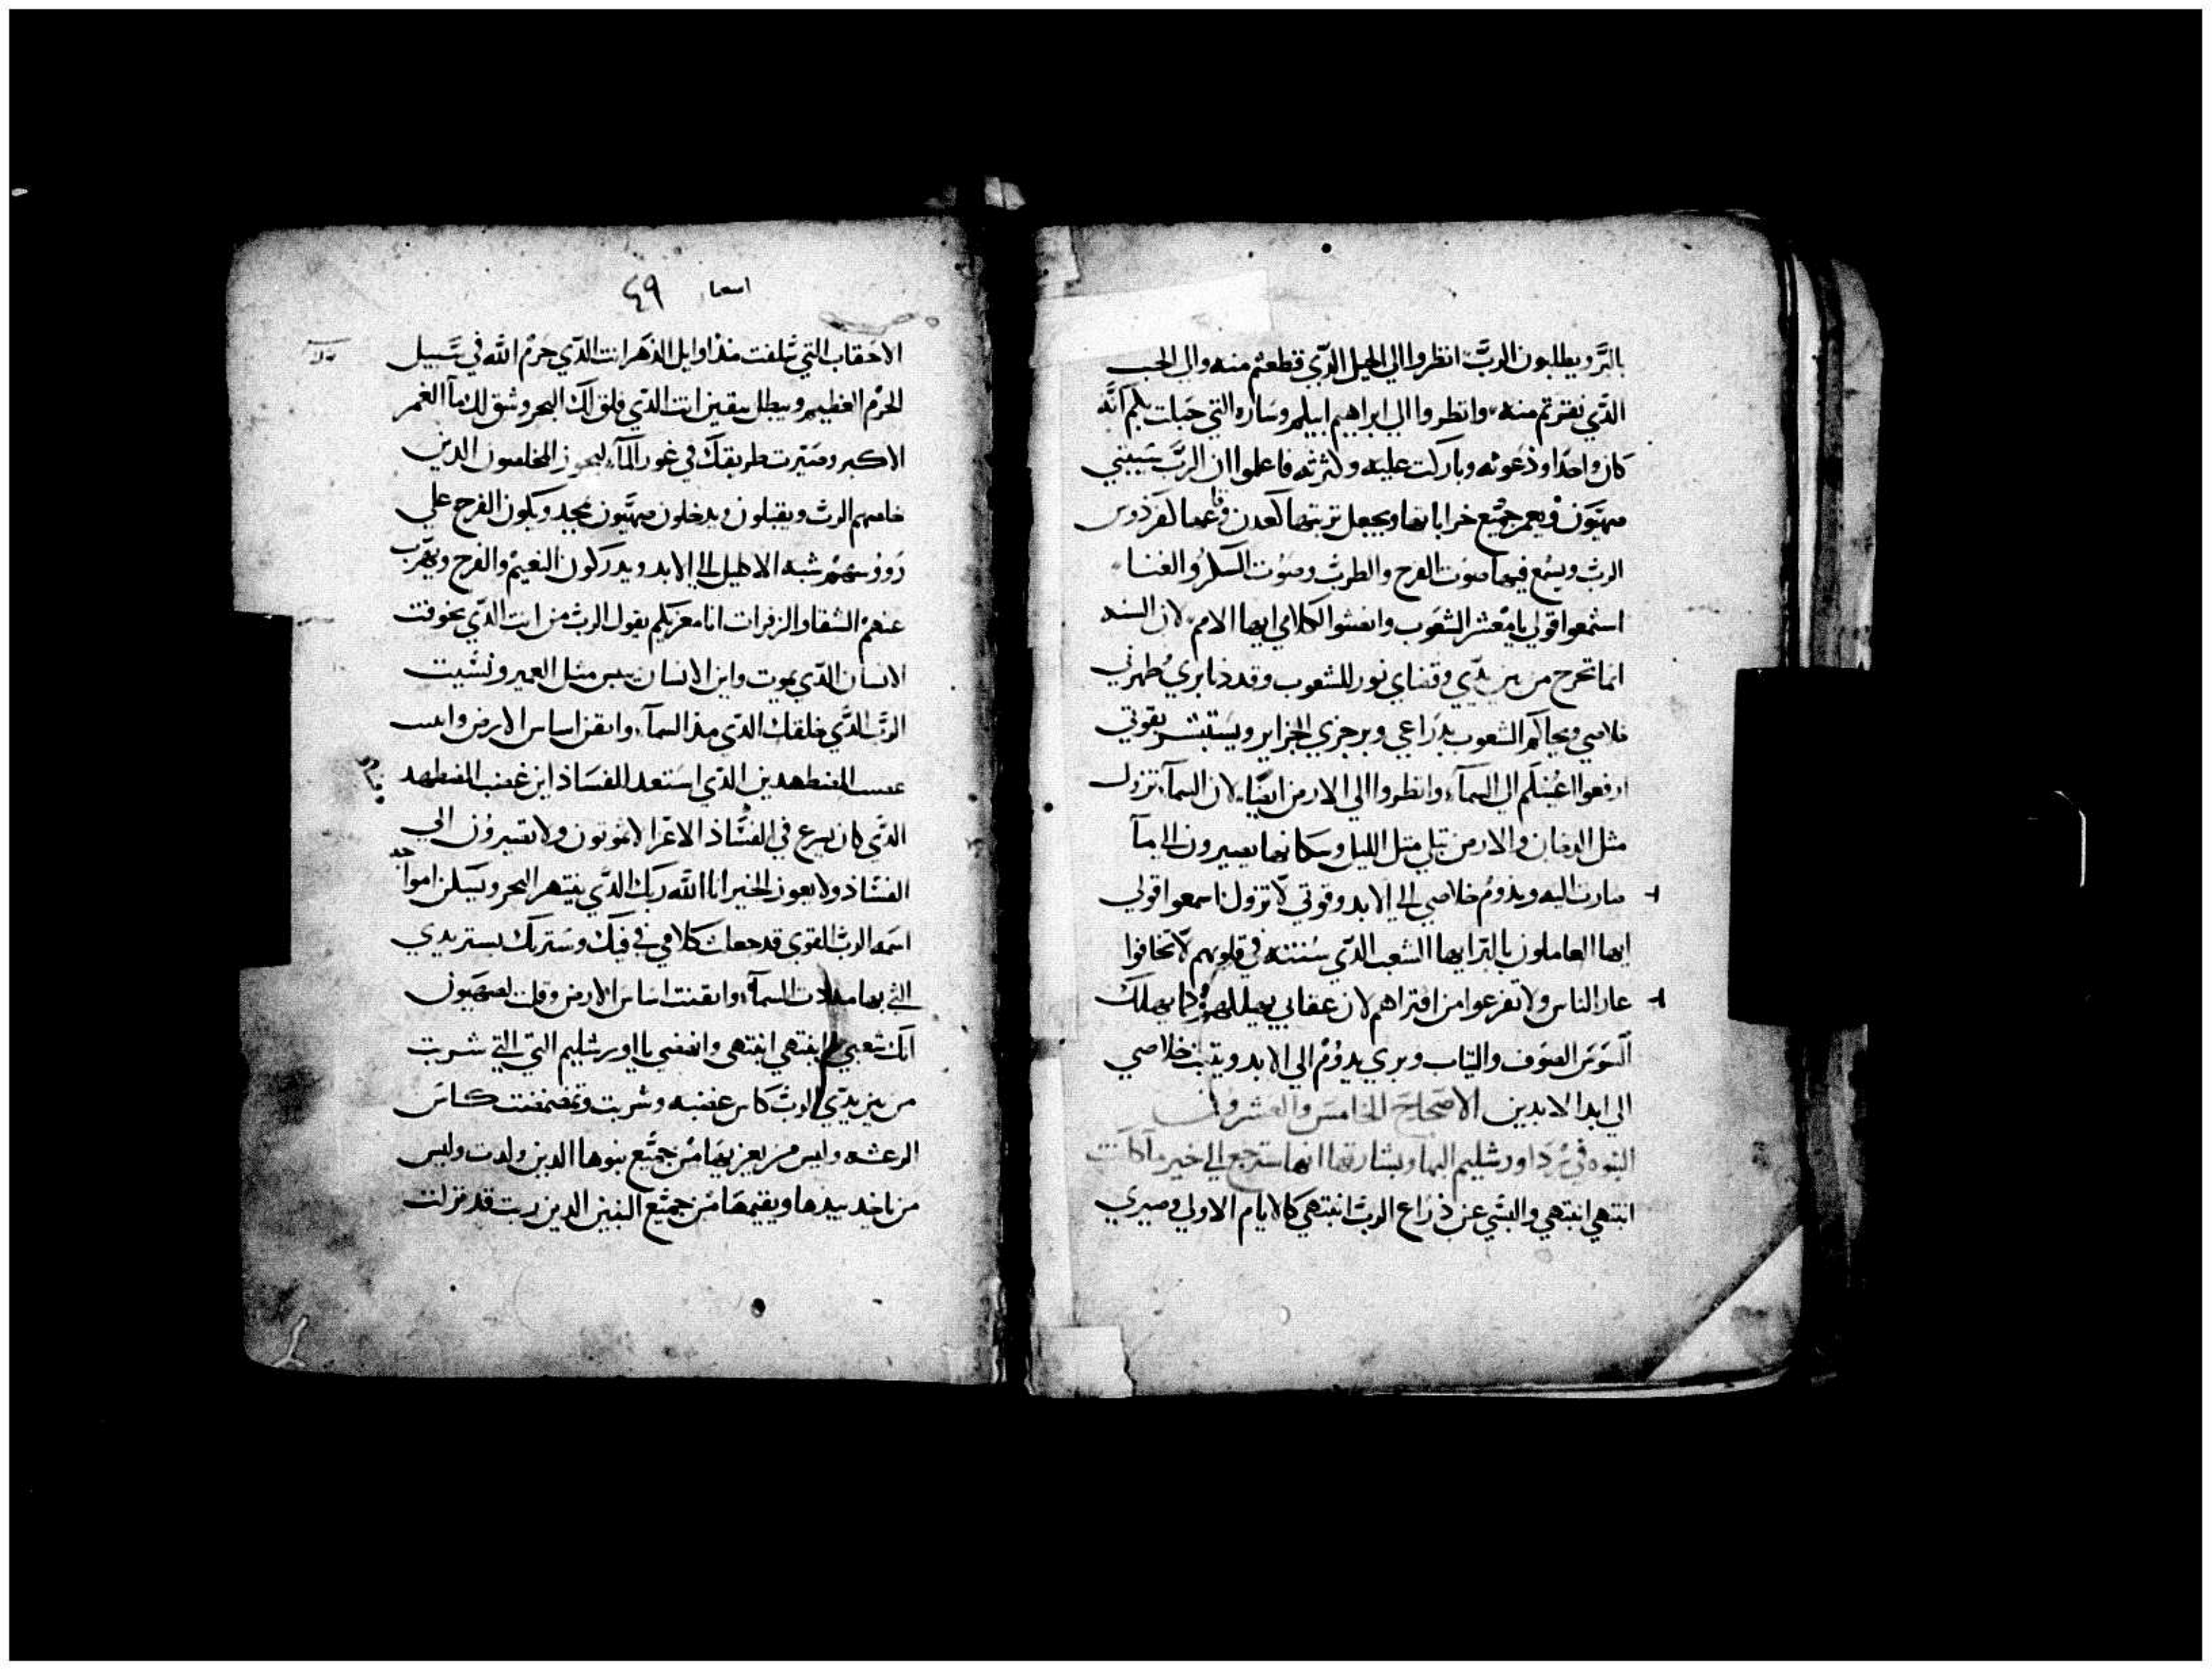 بالبر ويطلبون الرب انظروا الي الجبل الدي قطعتم منه والي الجب
الدي نقرتم منه وانظروا الي ابراهيم ابيكم وساره التي حبلت بكم انه
كان واحدا ودعوته وباركت عليه وكثرته فاعلموا ان الرب سيبني
صهيون ويعمر جميع خراباتها ويجعل تربتها كعدن وقاعها كفردوس
الرب ويسمع فيها صوت الفرح والطرب وصوت الشكر والغنا
استمعوا قولي يا معشر الشعوب وانصتوا لكلامي ايها الامم لان السنه
انما تخرج من بين يدي وقضاي نور للشعوب وقد دنا بري ظهر
خلاصي ويحاكم الشعوب بدراعي ويرجزي الجزاير ويستبشر بقوتي
ارفعوا اعينكم الي السمآ وانظروا الي الارض ايضا لان السمآ تزول
مثل الدخان والارض تبلي مثل الليل وسكانها يصيرون الي مآ
صارت اليه ويدوم خلاصي الي الابد وقوتي لا تزول اسمعوا قولي
ايها العاملون بالبر ايها الشعب الدي سنتي في قلوبهم لا تخافوا
عار الناس ولا تفزعوا من افتراهم لان عقابي يهلكهم كما يهلك
السوس الصوف والثياب وبري يدوم الي الابد ويثبت خلاصي
الي ابد الابدين الاصحاح الخامس والعشرون
النبوه في رد اورشليم اليها وبشارتها انها سترجع الي خير ما كانت
انتهي انتهي والبسي عز ذراع الرب انتهي كالايام الاولي وصيري
اسعيا ٤٩
الاحقاب التي سلفت منذ اوايل الدهر انت الدي حرم الله في سبيل
الحرم العظيم ويبطل بيقين انت الدي فلق لك البحر وشق لك مآ الغمر
الاكبر وصيرت طريقك في غور المآ ليجوز المخلصون الدين
خلصهم الرب ويقبلون ويدخلون صهيون بمجد ويكون الفرح علي
رووسهم شبه الاكليل الي الابد ويدركون النعيم والفرح ويهرب
عنهم الشقا والزفرات انا معزيكم يقول الرب من انت الدي تخوفت
الانسان الدي يموت وابن الانسان ييبس مثل العمير ونسيت
الرب الدي خلقك الدي مد السمآ واتقن اساس الارض
المضطهدين الدي استعد للفساد اين غضب المضطهد
الدي كان يسرع في الفساد الاعزا لا يموتون ولا تصيرون الي
الفساد ولا يعوز الخير انا الله ربك الدي ينتهر البحر ويسكن امواجه
اسمه الرب القوي قد جعلت كلامي في فيك وسترتك بستر يدي
التي بها مددت السمآ واتقنت اساس الارض وقلت لصهيون
انك شعبي انتهي انتهي وانهضي يا اورشليم التي شربت
من بين يدي الرب كاس غضبه وشربت وتمضمضت كاس
الرعشه وليس من يعزيها من جميع بنوها الدين ولدت وليس
من ياخد بيدها ويقيمها من جميع البنين الدين ربت قد نزلت